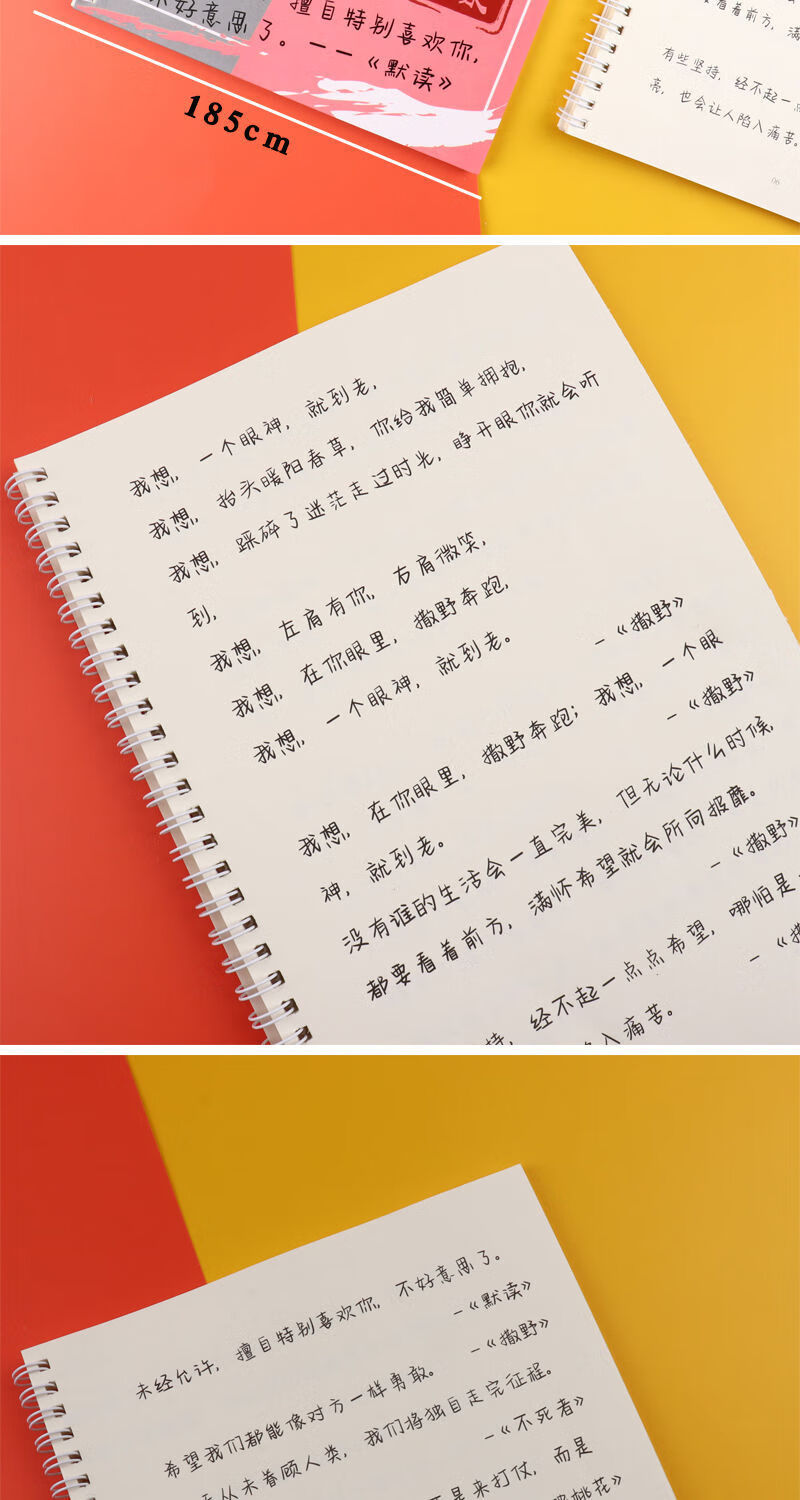 不好意思
擅自特别喜欢你,
了。——《默读》
185cm
看着前方,
有些坚持, 经不起一点
亮, 也会让人陷入痛苦。
06
我想, 一个眼神, 就到老,
我想, 抬头暖阳春草, 你给我简单拥抱,
我想, 踩碎了迷茫走过时光, 睁开眼你就会听
到,
我想, 左肩有你, 右肩微笑,
我想, 在你眼里, 撒野奔跑,
我想, 一个眼神, 就到老。
-《撒野》
我想, 在你眼里, 撒野奔跑; 我想, 一个眼
神, 就到老。
-《撒野》
没有谁的生活会一直完美, 但无论什么时候,
都要看着前方, 满怀希望就会所向披靡。
-《撒野》
持, 经不起一点点希望, 哪怕是
入痛苦。
-《撒
未经允许, 擅自特别喜欢你, 不好意思了。
-《默读》
希望我们都能像对方一样勇敢。
-《撒野》
从未眷顾人类, 我们将独自走完征程。
-《不死者》
是来打仗, 而是
桃花》